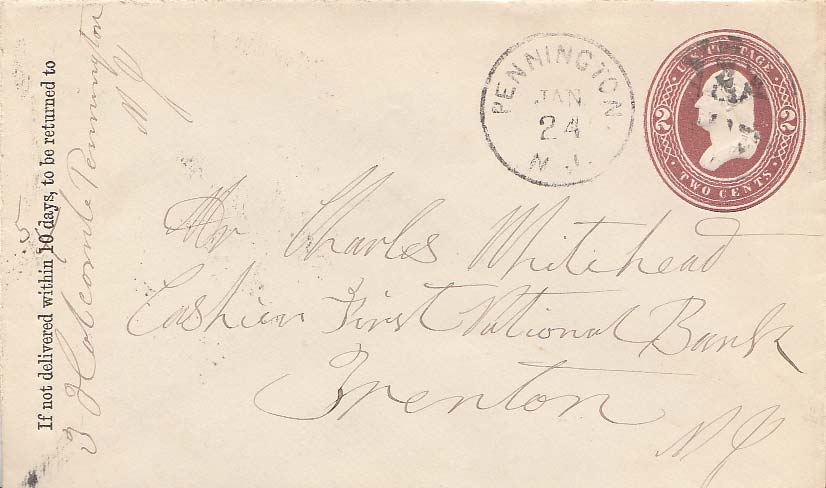 If not delivered within 10 days, to be returned to
5
Holcombe Pennington
N J
PENNINGTON
JAN
24
N. J.
U.S. POSTAGE
2 2
TWO CENTS
Mr Charles Whitehead
Cashier First National Bank
Trenton
N J